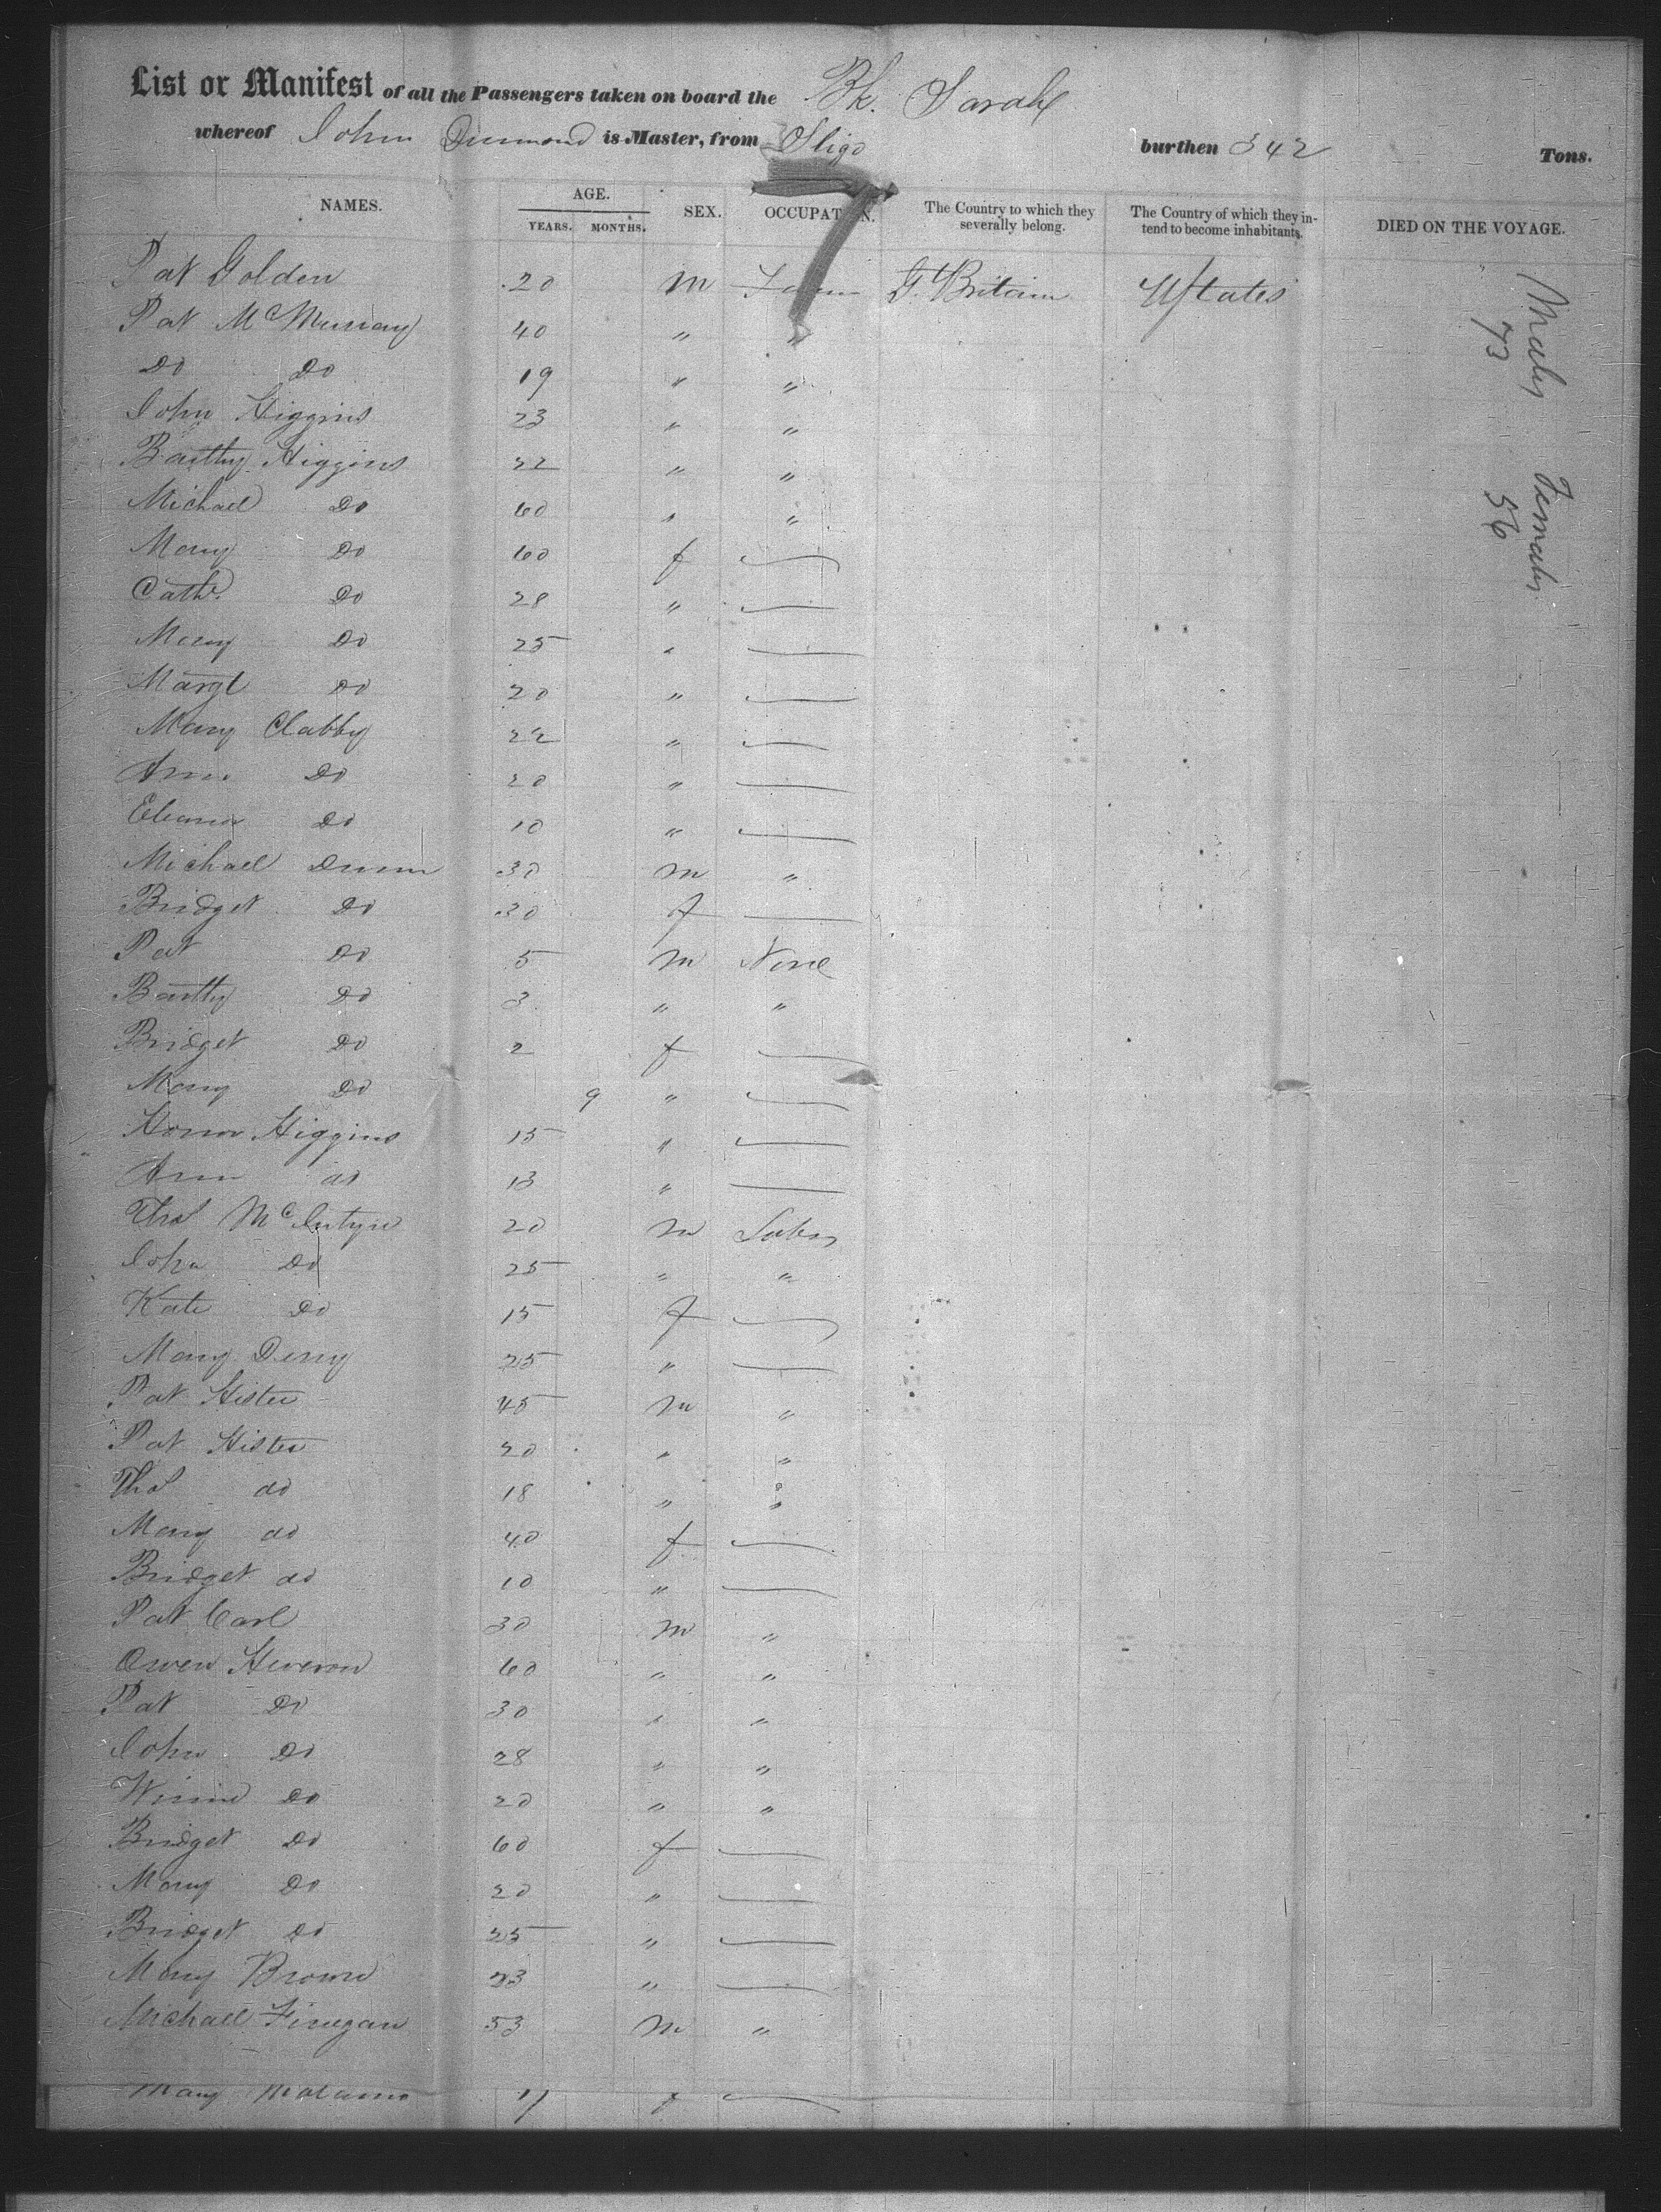 List or Manifest of all the Passengers taken on board the Bk. Sarah
whereof John Dumond is Master, from Sligo burthen 342 Tons.
NAMES. AGE. YEARS. MONTHS. SEX. OCCUPATION. The Country to which they severally belong. The Country of which they intend to become inhabitants. DIED ON THE VOYAGE.
Pat Golden 20 M G. Britain U States
Pat McMurray 40 " "
Do Do 19 " "
John Higgins 23 " "
Bartly Higgins 22 " "
Michael Do 60 " "
Mary Do 60 f
Cath. Do 28 "
Mary Do 25 "
Margt Do 20 "
Mary Clabby 22 "
Ann Do 20 "
Eleanor Do 10 "
Michael Dunn 30 M "
Bridget Do 30 f
Pat Do 5 M None
Bartly Do 3 " "
Bridget Do 2 f
Mary Do 9 "
Honor Higgins 15 "
Ann do 13 "
Thos McIntyre 20 M Labor
John Do 25 " "
Kate Do 15 f
Mary Derry 25 "
Pat Hister 45 M "
Pat Hister 20 " "
Thos do 18 " "
Mary do 40 f
Bridget do 10 "
Pat Carl 30 M "
Owen Heveron 60 " "
Pat Do 30 " "
John Do 28 " "
Winnie Do 20 " "
Bridget Do 60 f
Mary Do 20 "
Bridget Do 25 "
Mary Brown 23 "
Michael Finegan 53 M "
Mary f
Males Females
73 56